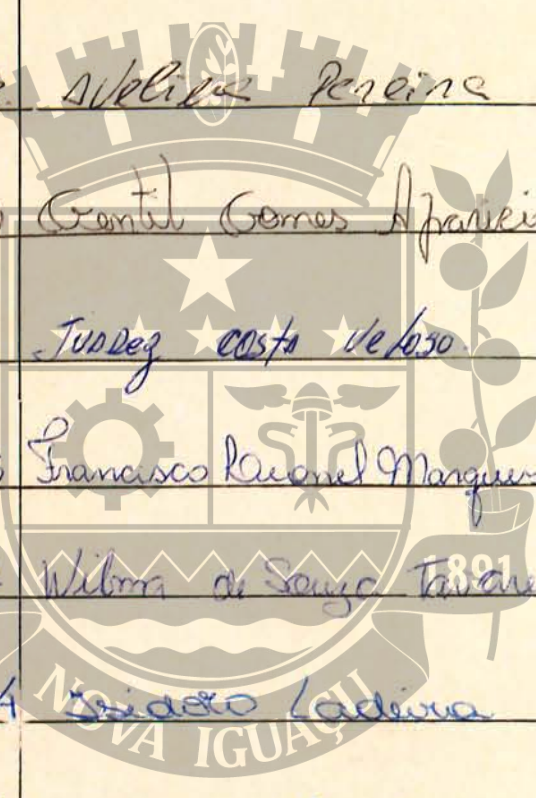 Avelina Pereira
Gentil Gomes Aparici
Juarez costa Veloso.
Francisco Marques
1891
Wilma de Souza Tavare
4 Isidoro Ladeira
NOVA IGUAÇU